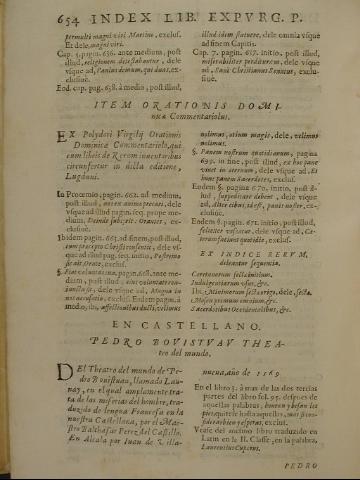 654 INDEX LIB. EXPVRG. P.
permulti magni viri Marino, exclus.
Et dele, magni viri.
Cap. 5. pagin. 636. ante medium, post
illud, religionem detestantur, dele
vsque ad, Panias demum, qui duas, exclusiuè.
Eod. cap. pag. 638. à medio, post illud,
illud idem fatetur, dele omnia vsque
ad finem Capitis.
Cap. 7. pagin. 617. initio, post illud,
miserabiliter perdiderunt, dele vsque
ad, Sanè Christianus Senatus, exclusiuè.
ITEM ORATIONIS DOMI-
nicæ Commentariolus.
EX Polydori Virgilij Orationis
Dominicæ Commentariolo, qui
cum libris de Rerum inuentoribus
circunfertur in dicta editione,
Lugduni.
In Prooemio, pagin. 662. ad medium,
post illud, autem animo precari, dele
vsque ad illud pagin. seq. prope medium,
Deinde subijcit. Orantes, exclusiuè.
Ibidem pagin. 663. ad finem, post illud,
cum præcepto Christi consentit, dele vsque
ad illud pag. seq. initio, Postremo
sic ait. Orate, exclus.
§. Fiat voluntas tua, pagin. 668. ante medium,
post illud, eius voluntatem
inuitusque, dele vsque ad, Magna in
nos accusatio, exclus. Eadem pagin. à
medio, ibi, affectibus ducti, volimus
nolimus, otium magis, dele, velimus
nolimus.
§. Panem nostrum quotidianum, pagina
699. in fine, post illud, ex hoc pane
viuat in æternum, dele vsque ad, Et
hunc panem Sacerdotes, exclus.
Eadem §. pagina 670. initio, post illud,
suppeditare debent, dele vsque
ad, Alter cibus, id est, panis noster, exclusiuè.
Eadem §. pagin. 671. initio, post illud,
feliciter vescatur, dele vsque ad, Ceterum
factum quotidie, exclus.
EX INDICE RERVM,
deleantur sequentia.
Ceremoniarum fel.
Indulgentiarum vsus, &c.
Missa primum omnium, &c.
Sacerdotibus Occidentalibus, &c.
EN CASTELLANO.
PEDRO BOVISTVAV THEA-
tro del mundo.
DEl Theatro del mundo de Pedro
Bouistuau, llamado Launay,
en el qual amplamente trata
de las miserias del hombre, traduzido
de lengua Francesa en la
nuestra Castellana, por el Maestro
Balthasar Perez del Castillo.
En Alcala por Iuan de Villanueua,
año de 1569.
En el libro 3. à tras de las dos tercias
partes del libro fol. 95. despues de
aquellas palabras,
quitese hasta aquellas, mas
exclus.
Vease del mismo libro traduzido en
Latin en la II. Classe, en la palabra,
Laurentius Cupers.
PEDRO